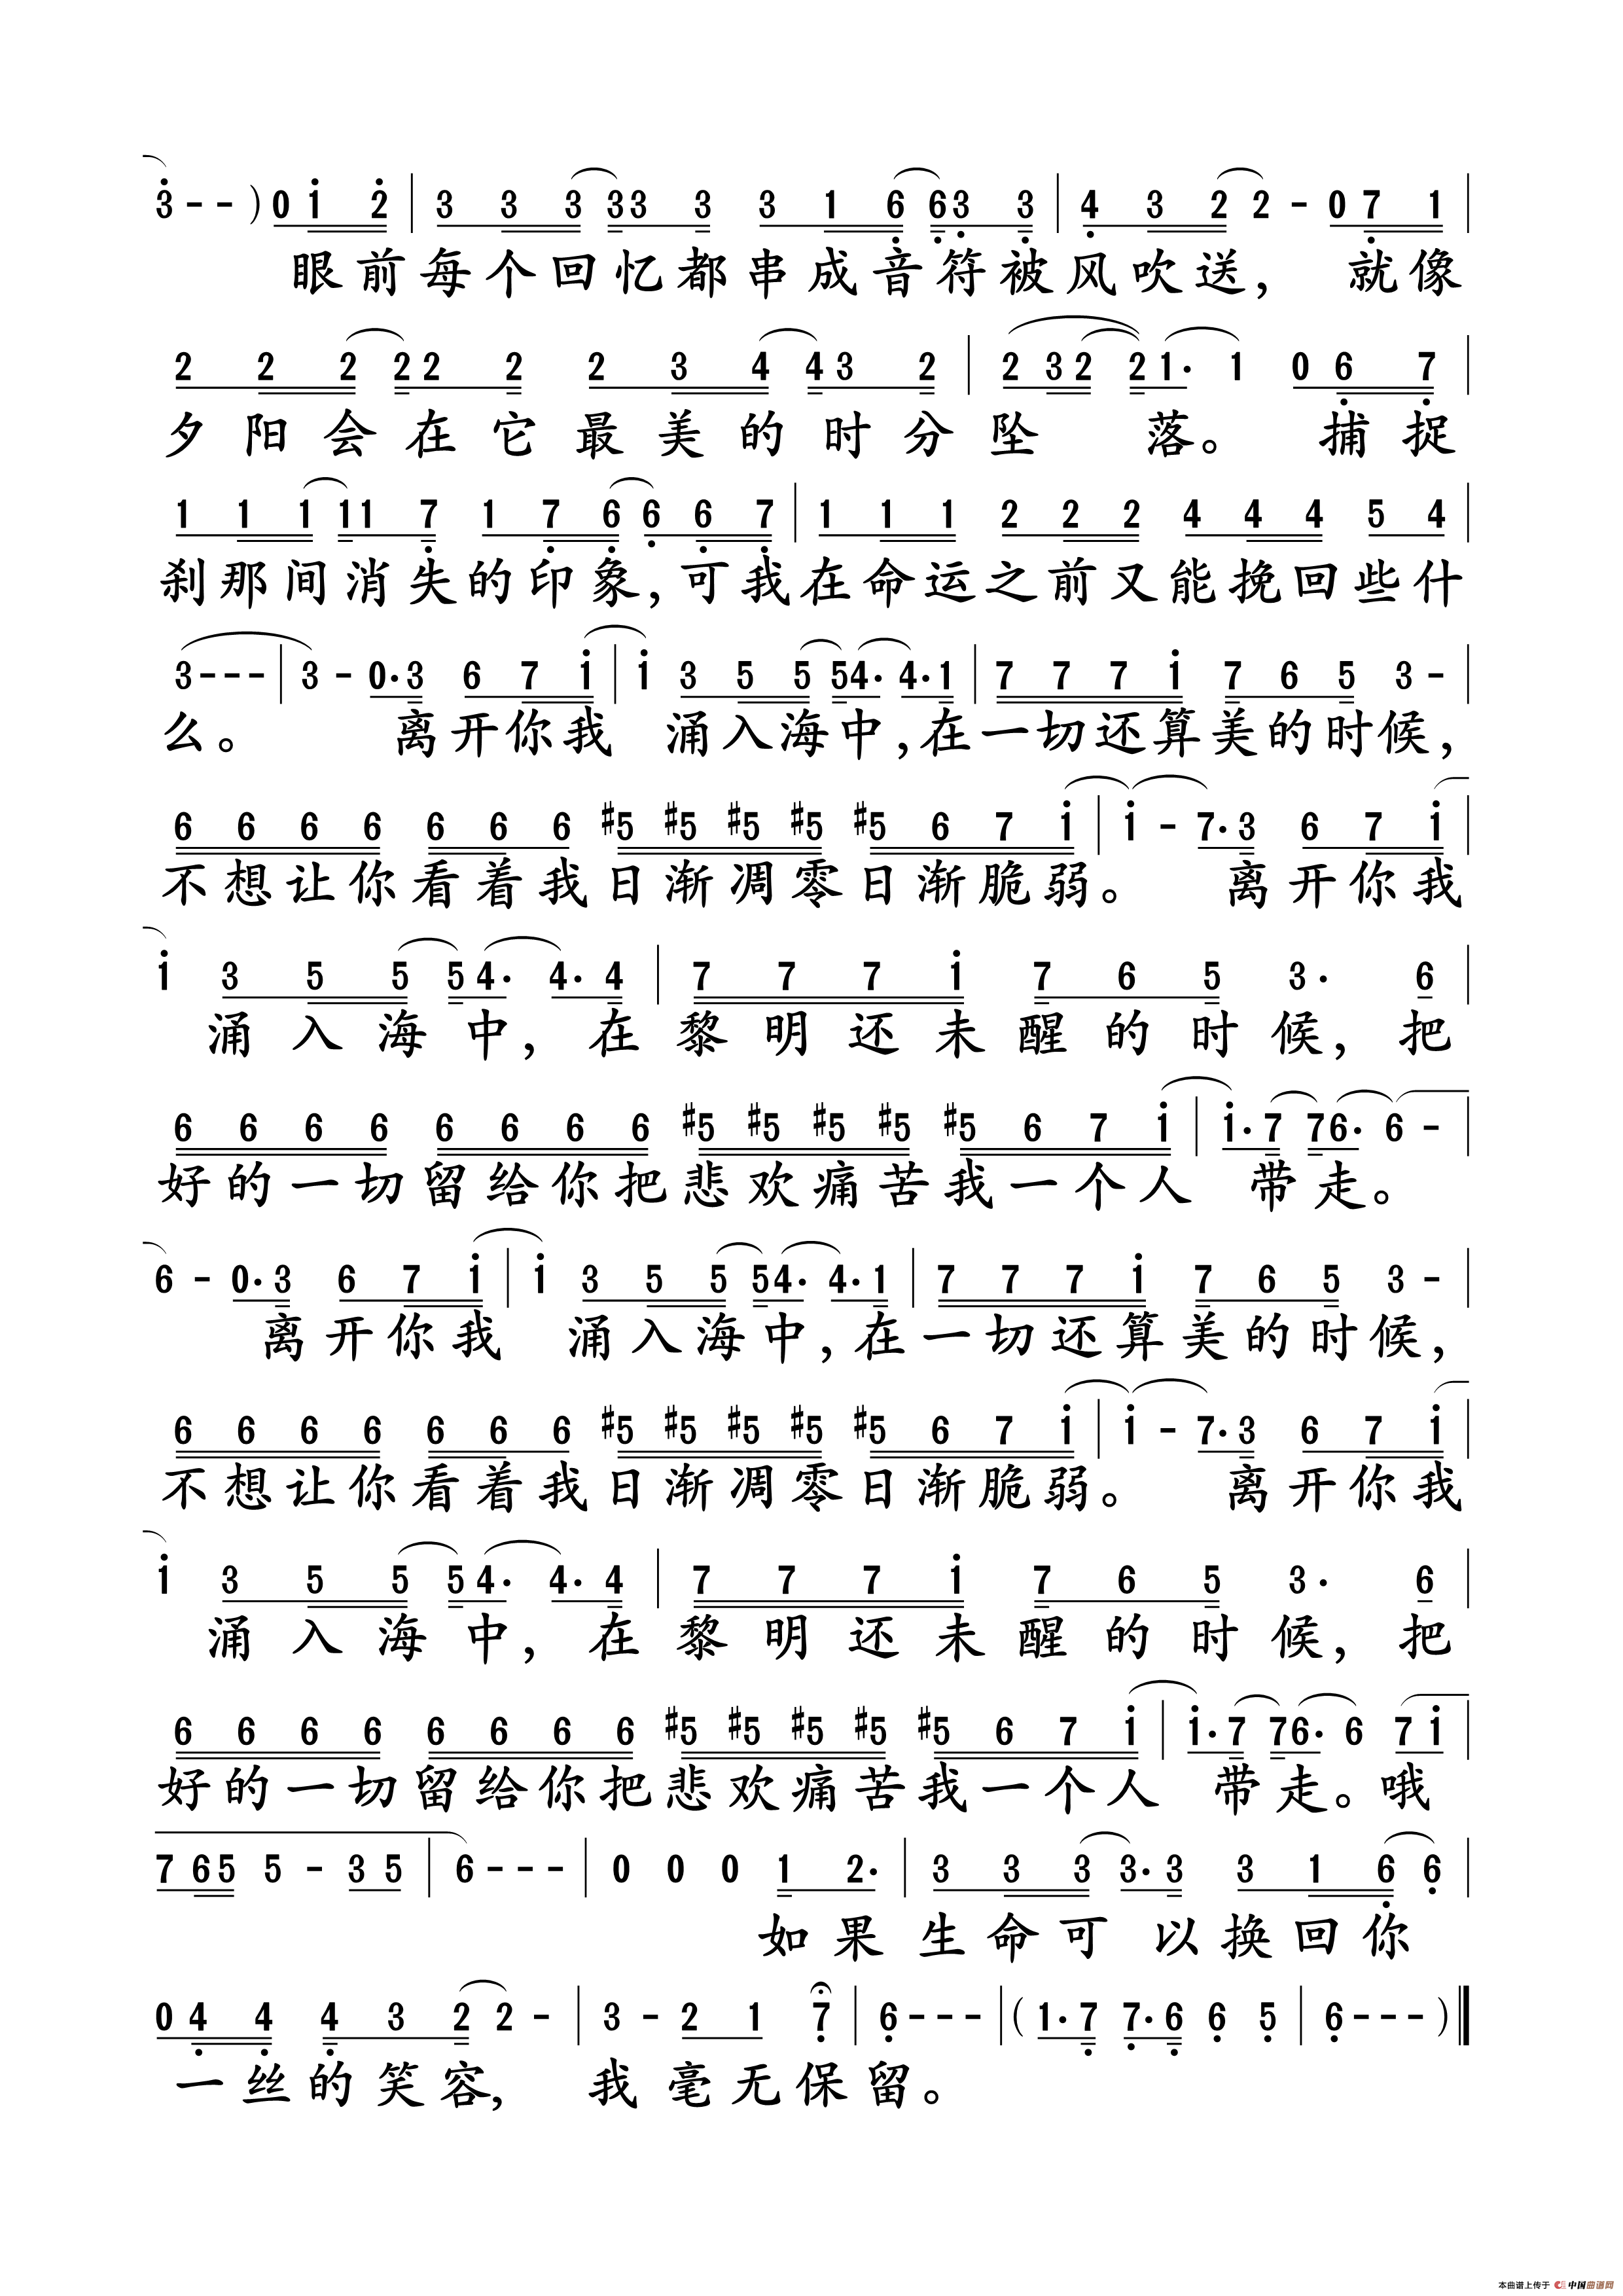 3 - - ) 0 1 2 | 3 3 3 3 3 3 3 1 6 6 3 3 | 4 3 2 2 - 0 7 1 |
眼前每个回忆都串成音符被风吹送， 就像
2 2 2 2 2 2 2 3 4 4 3 2 | 2 3 2 2 1· 1 0 6 7 |
夕阳会在它最美的时分坠 落。 捕捉
1 1 1 1 1 7 1 7 6 6 6 7 | 1 1 1 2 2 2 4 4 4 5 4 |
刹那间消失的印象，可我在命运之前又能挽回些什
3 - - - | 3 - 0· 3 6 7 1 | 1 3 5 5 5 4· 4· 1 | 7 7 7 1 7 6 5 3 - |
么。 离开你我 涌入海中，在一切还算美的时候，
6 6 6 6 6 6 6 #5 #5 #5 #5 #5 6 7 1 | 1 - 7· 3 6 7 1 |
不想让你看着我日渐凋零日渐脆弱。 离开你我
1 3 5 5 5 4· 4· 4 | 7 7 7 1 7 6 5 3· 6 |
涌入海中，在黎明还未醒的时候，把
6 6 6 6 6 6 6 6 #5 #5 #5 #5 #5 6 7 1 | 1· 7 7 6· 6 - |
好的一切留给你把悲欢痛苦我一个人 带走。
6 - 0· 3 6 7 1 | 1 3 5 5 5 4· 4· 1 | 7 7 7 1 7 6 5 3 - |
离开你我 涌入海中，在一切还算美的时候，
6 6 6 6 6 6 6 #5 #5 #5 #5 #5 6 7 1 | 1 - 7· 3 6 7 1 |
不想让你看着我日渐凋零日渐脆弱。 离开你我
1 3 5 5 5 4· 4· 4 | 7 7 7 1 7 6 5 3· 6 |
涌入海中，在黎明还未醒的时候，把
6 6 6 6 6 6 6 6 #5 #5 #5 #5 #5 6 7 1 | 1· 7 7 6· 6 7 1 |
好的一切留给你把悲欢痛苦我一个人 带走。哦
7 6 5 5 - 3 5 | 6 - - - | 0 0 0 1 2· | 3 3 3 3· 3 3 1 6 6 |
如果生命可 以换回你
0 4 4 4 3 2 2 - | 3 - 2 1 7 | 6 - - - | ( 1· 7 7· 6 6 5 | 6 - - - )
一丝的笑容， 我毫无保留。
本曲谱上传于 中国曲谱网